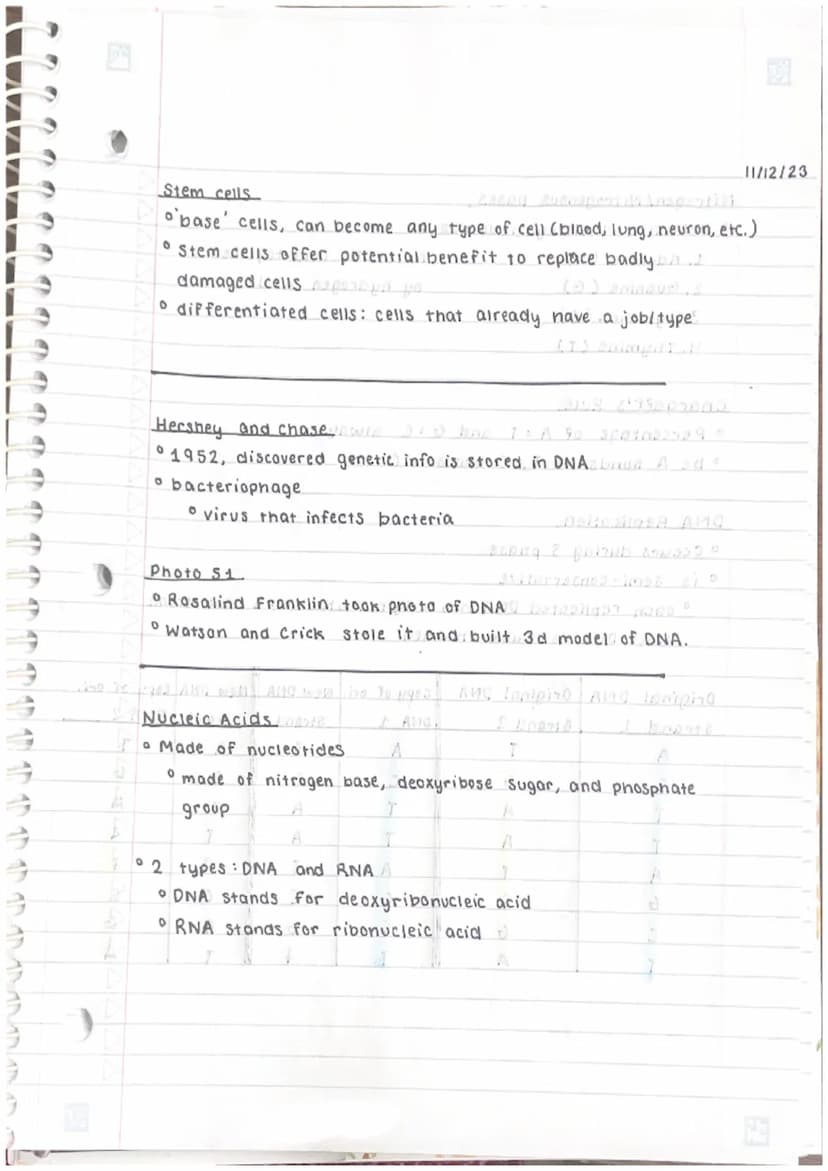 11/12/23
Stem cells
° 'base' cells, can become any type of cell (blood, lung, neuron, etc.)
° Stem cells offer potential benefit to replace badly
damaged cells
° differentiated cells: cells that already have a job/type
Hershey and Chase
° 1952, discovered genetic info is stored in DNA
° bacteriophage
° virus that infects bacteria
Photo 51
° Rosalind Franklin took photo of DNA
° Watson and Crick stole it and built 3d model of DNA.
Nucleic Acids
° Made of nucleotides
° made of nitrogen base, deoxyribose sugar, and phosphate
group
° 2 types: DNA and RNA
° DNA stands for deoxyribonucleic acid
° RNA stands for ribonucleic acid